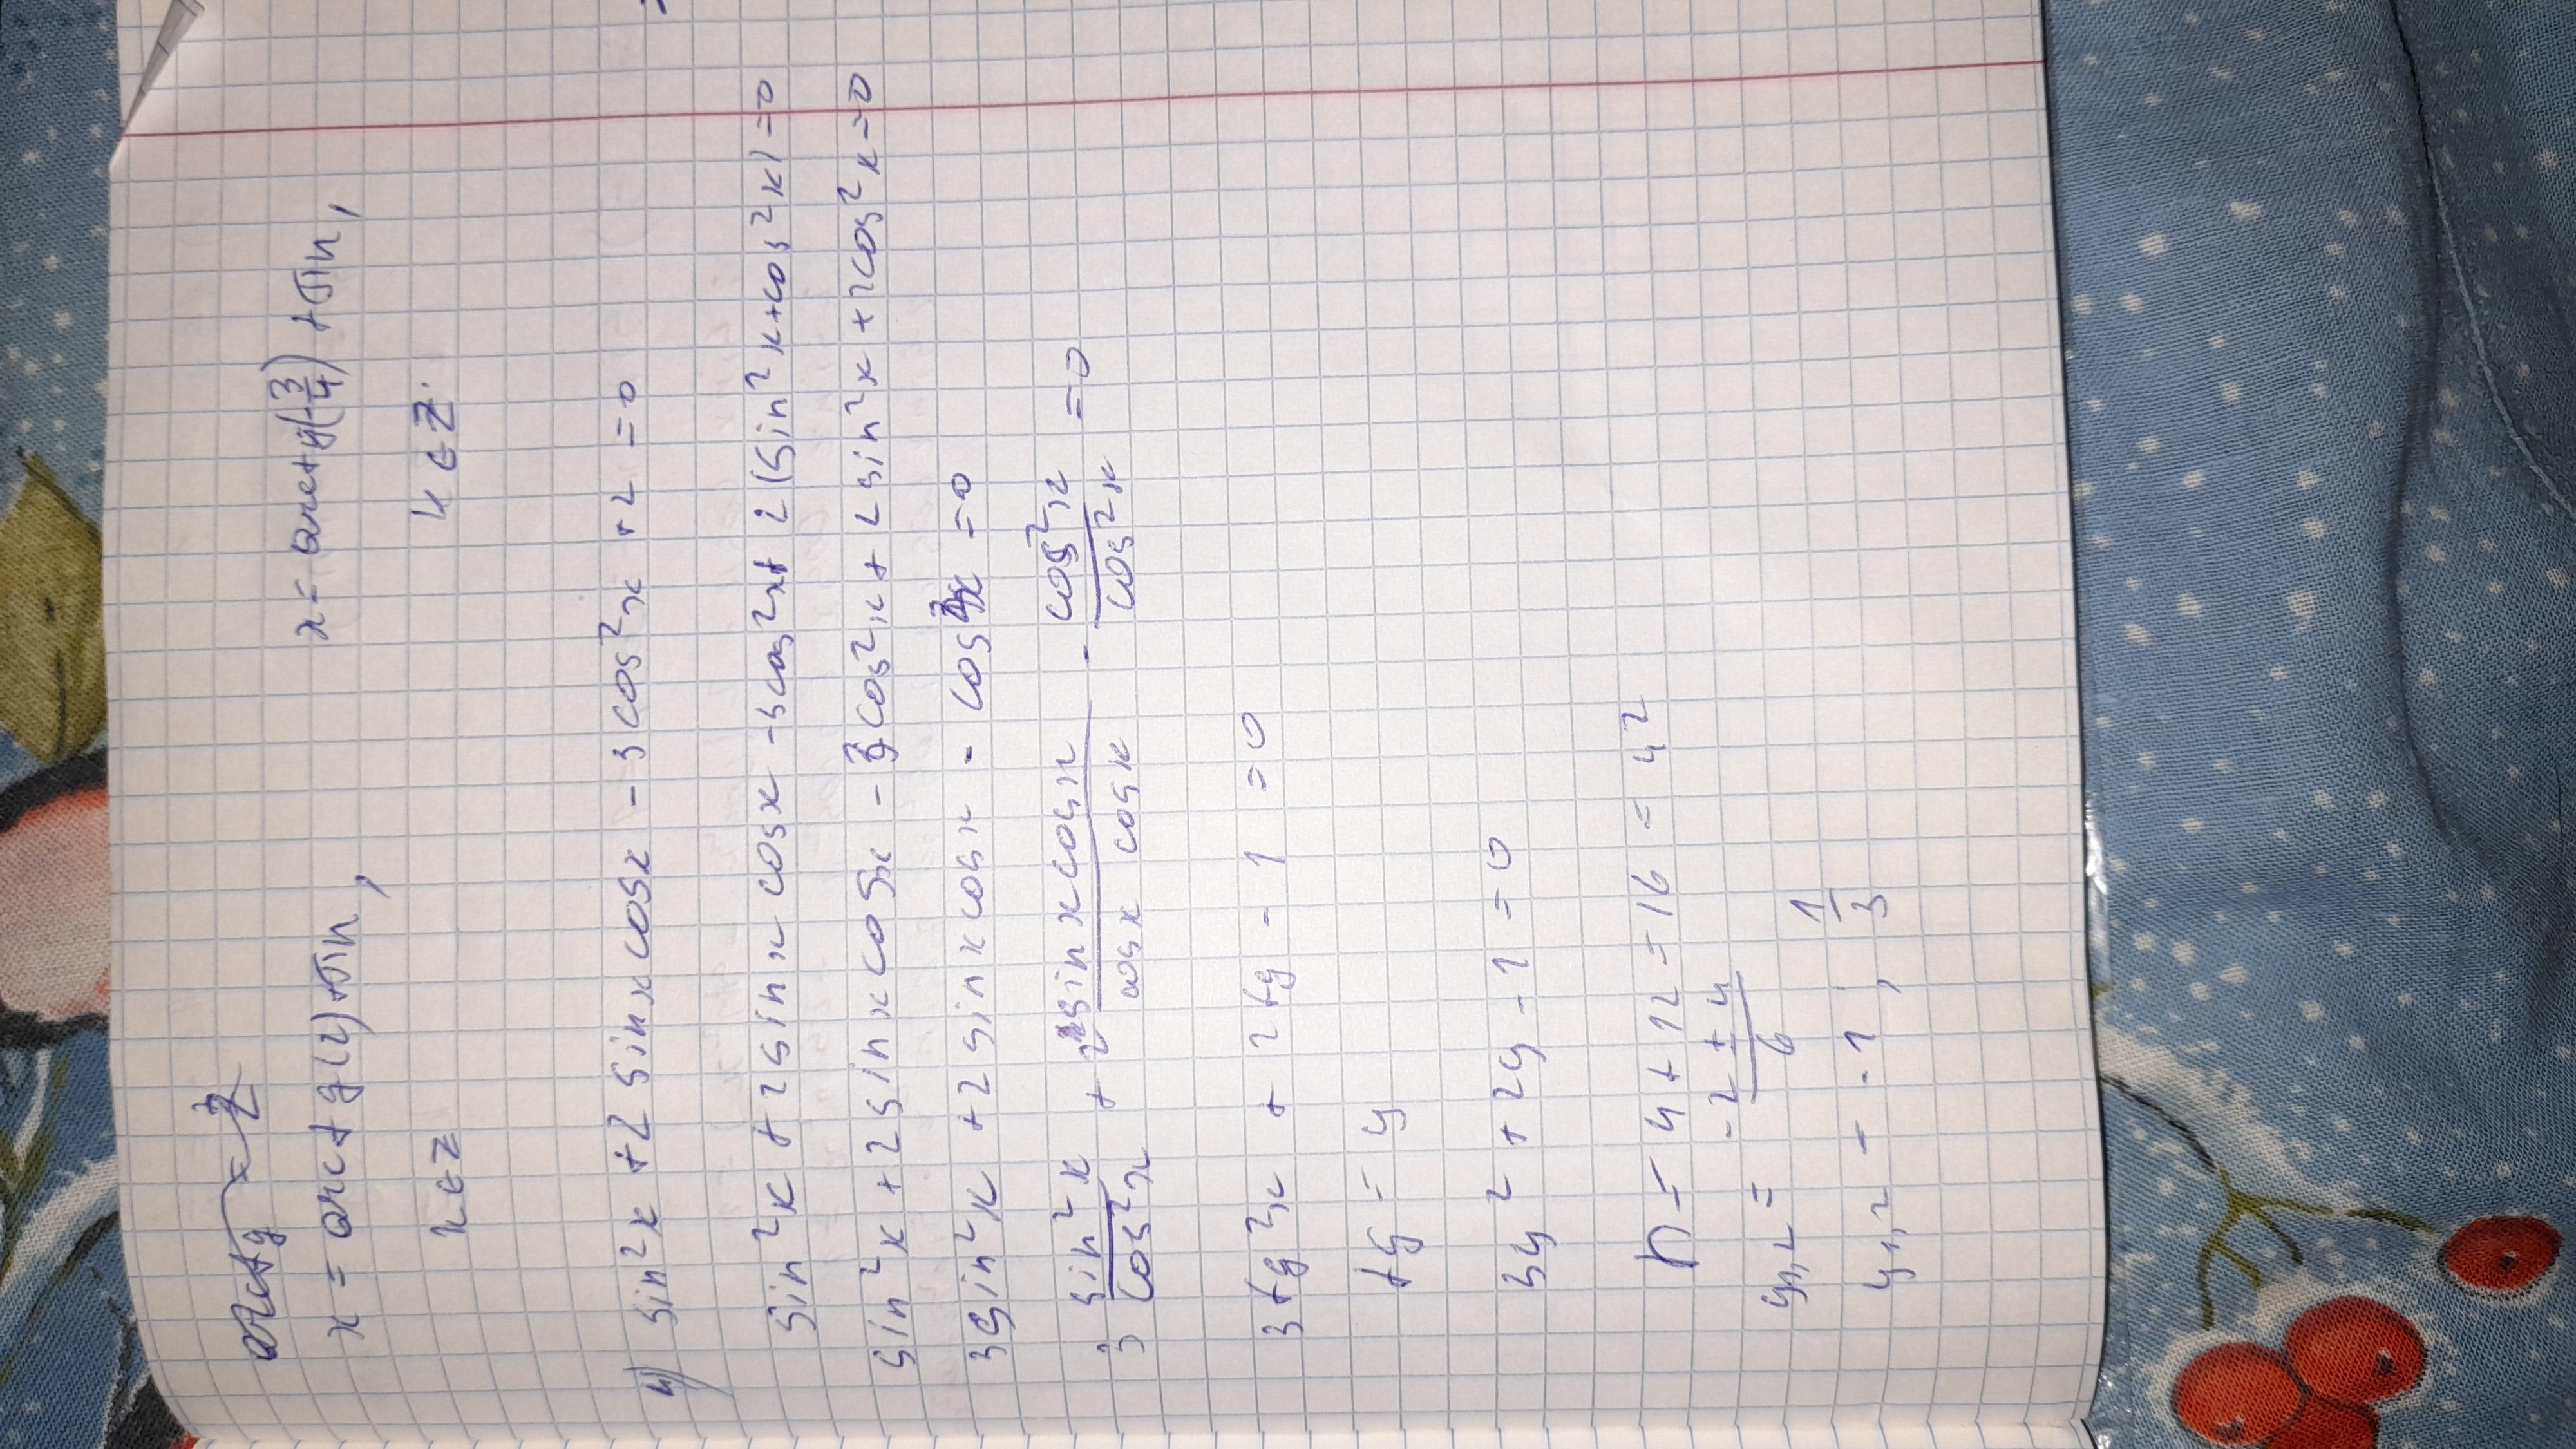 x = arctg(4)+πn, x = arctg(-3/4)+πn,
n∈Z n∈Z.
4) sin²x + 2 sin x cos x - 3 cos²x + 2 = 0
sin²x + 2 sin x cos x - 3 cos²x + 2 (sin²x + cos²x) = 0
sin²x + 2 sin x cos x - 3 cos²x + 2 sin²x + 2cos²x = 0
3 sin²x + 2 sin x cos x - cos²x = 0
3 sin²x/cos²x + 2 sin x cos x/cos x cos x - cos²x/cos²x = 0
3 tg²x + 2 tg - 1 = 0
tg = y
3y² + 2y - 1 = 0
D = 4 + 12 = 16 = 4²
y1,2 = -2 ± 4/6
y1,2 = -1 ; 1/3